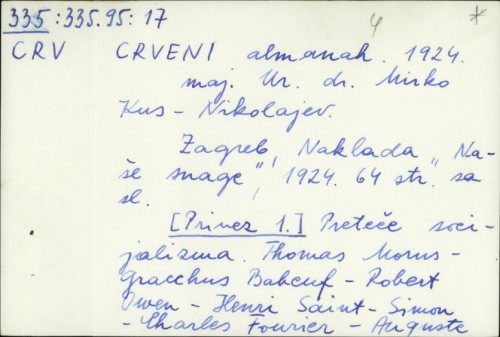 335:335.95:17
4 *
CRV CRVENI almanah. 1924.
maj. Ur. dr. Mirko
Kus-Nikolajev.
Zagreb, Naklada „Na-
še snage", 1924. 64 str. sa
sl.
[Privez 1.] Preteče soci-
jalizma. Thomas Morus-
Gracchus Babeuf - Robert
Owen - Henri Saint-Simon
- Charles Fourier - Auguste